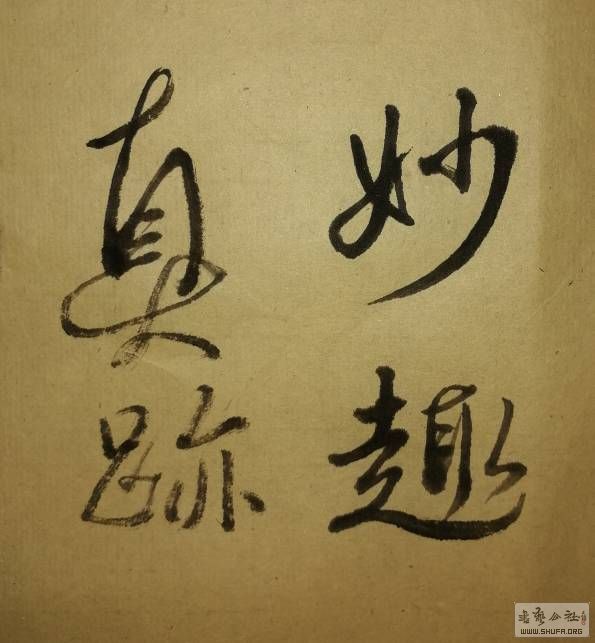 妙趣
真跡
书艺公社
WWW.SHUFA.ORG